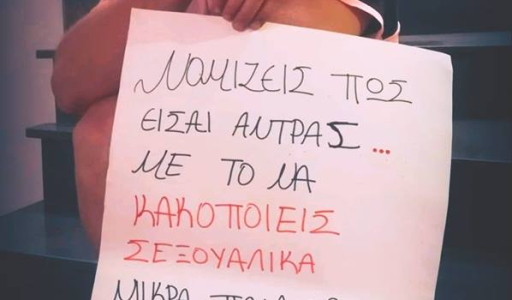 ΝΟΜΙΖΕΙΣ ΠΩΣ
ΕΙΣΑΙ ΑΝΤΡΑΣ ...
ΜΕ ΤΟ ΝΑ
ΚΑΚΟΠΟΙΕΙΣ
ΣΕΞΟΥΑΛΙΚΑ
ΜΙΚΡΑ